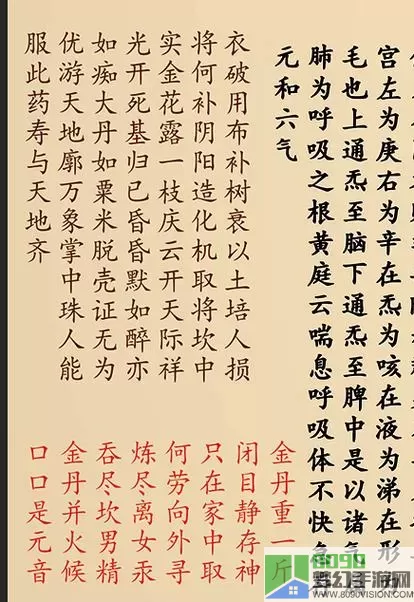 宫左为庚右为辛在炁为咳在液为涕在形
毛也上通炁至脑下通炁至脾中是以诸气
肺为呼吸之根黄庭云喘息呼吸体不快急
元和六气
衣破用布补树衰以土培人损
将何补阴阳造化机取将坎中
实金花露一枝庆云开天际祥
光开死基归已昏昏默如醉亦
如痴大丹如粟米脱壳证无为
优游天地廓万象掌中珠人能
服此药寿与天地齐
金丹重一斤
闭目静存神
只在家中取
何劳向外寻
炼尽离女汞
吞尽坎男精
金丹并火候
口口是元音
8090
梦幻手游网
www.8090vision.com